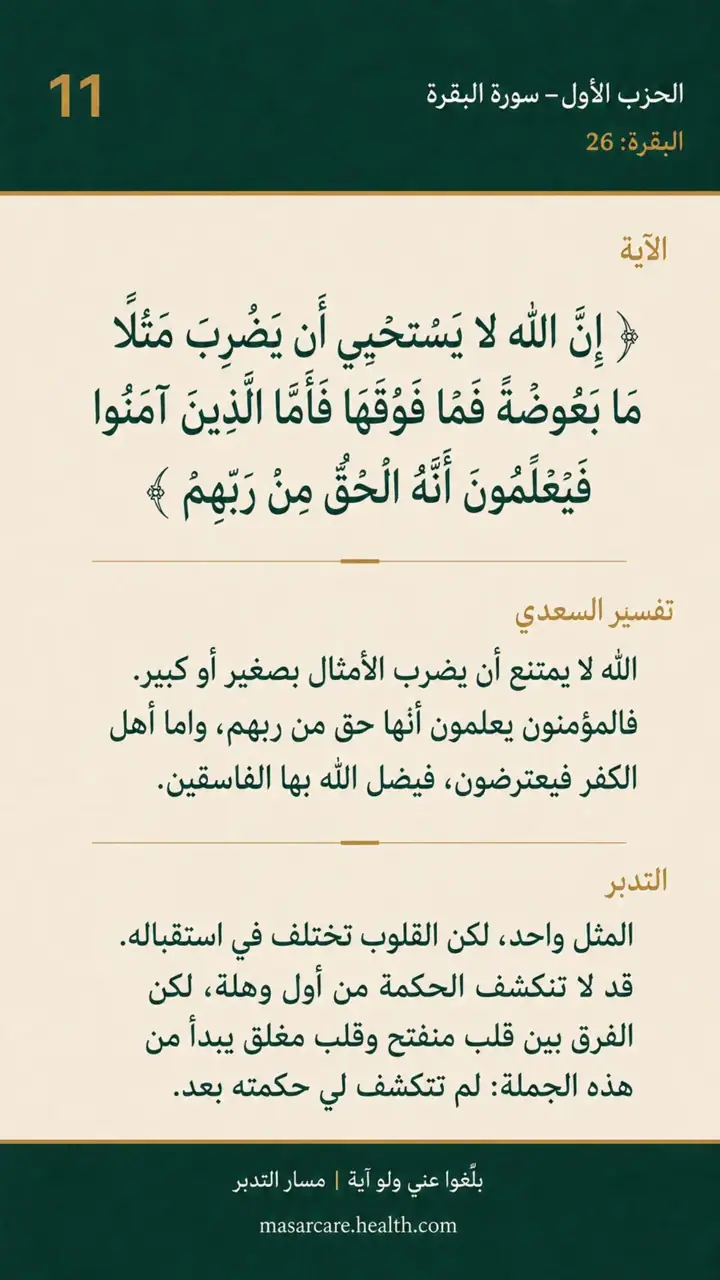 11
الحزب الأول – سورة البقرة
البقرة: 26
الآية
﴿ إِنَّ الله لا يَسْتحْيِي أَن يَضُرِبَ مَثُلًا
مَا بَعُوضْةً فَمْا فَوُقَهَا فَأَمَّا الَّذِينَ آمَنُوا
فَيْعْلًمُونَ أَنَّهُ الْحُقُّ مِنْ رَبّهِمْ ﴾
تفسير السعدي
الله لا يمتنع أن يضرب الأمثال بصغير أو كبير.
فالمؤمنون يعلمون أنْها حق من ربهم، واما أهل
الكفر فيعترضون، فيضل الله بها الفاسقين.
التدبر
المثل واحد، لكن القلوب تختلف في استقباله.
قد لا تنكشف الحكمة من أول وهلة، لكن
الفرق بين قلب منفتح وقلب مغلق يبدأ من
هذه الجملة: لم تتكشف لي حكمته بعد.
بلَّغوا عني ولو آية | مسار التدبر
masarcare.health.com